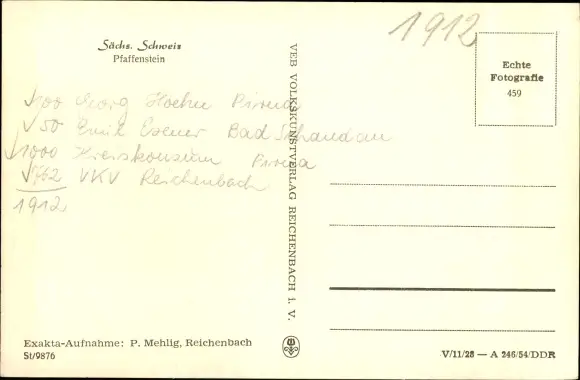 1912
Sächs. Schweiz
Pfaffenstein
Echte
Fotografie
459
100 Georg Hoehn Pirna
50 Emil Exener Bad Schandau
1000 Kreiskonsum Pirna
762 VKV Reichenbach
1912
VEB VOLKSKUNSTVERLAG REICHENBACH i. V.
Exakta-Aufnahme: P. Mehlig, Reichenbach
St/9876
V/11/28 — A 246/54/DDR